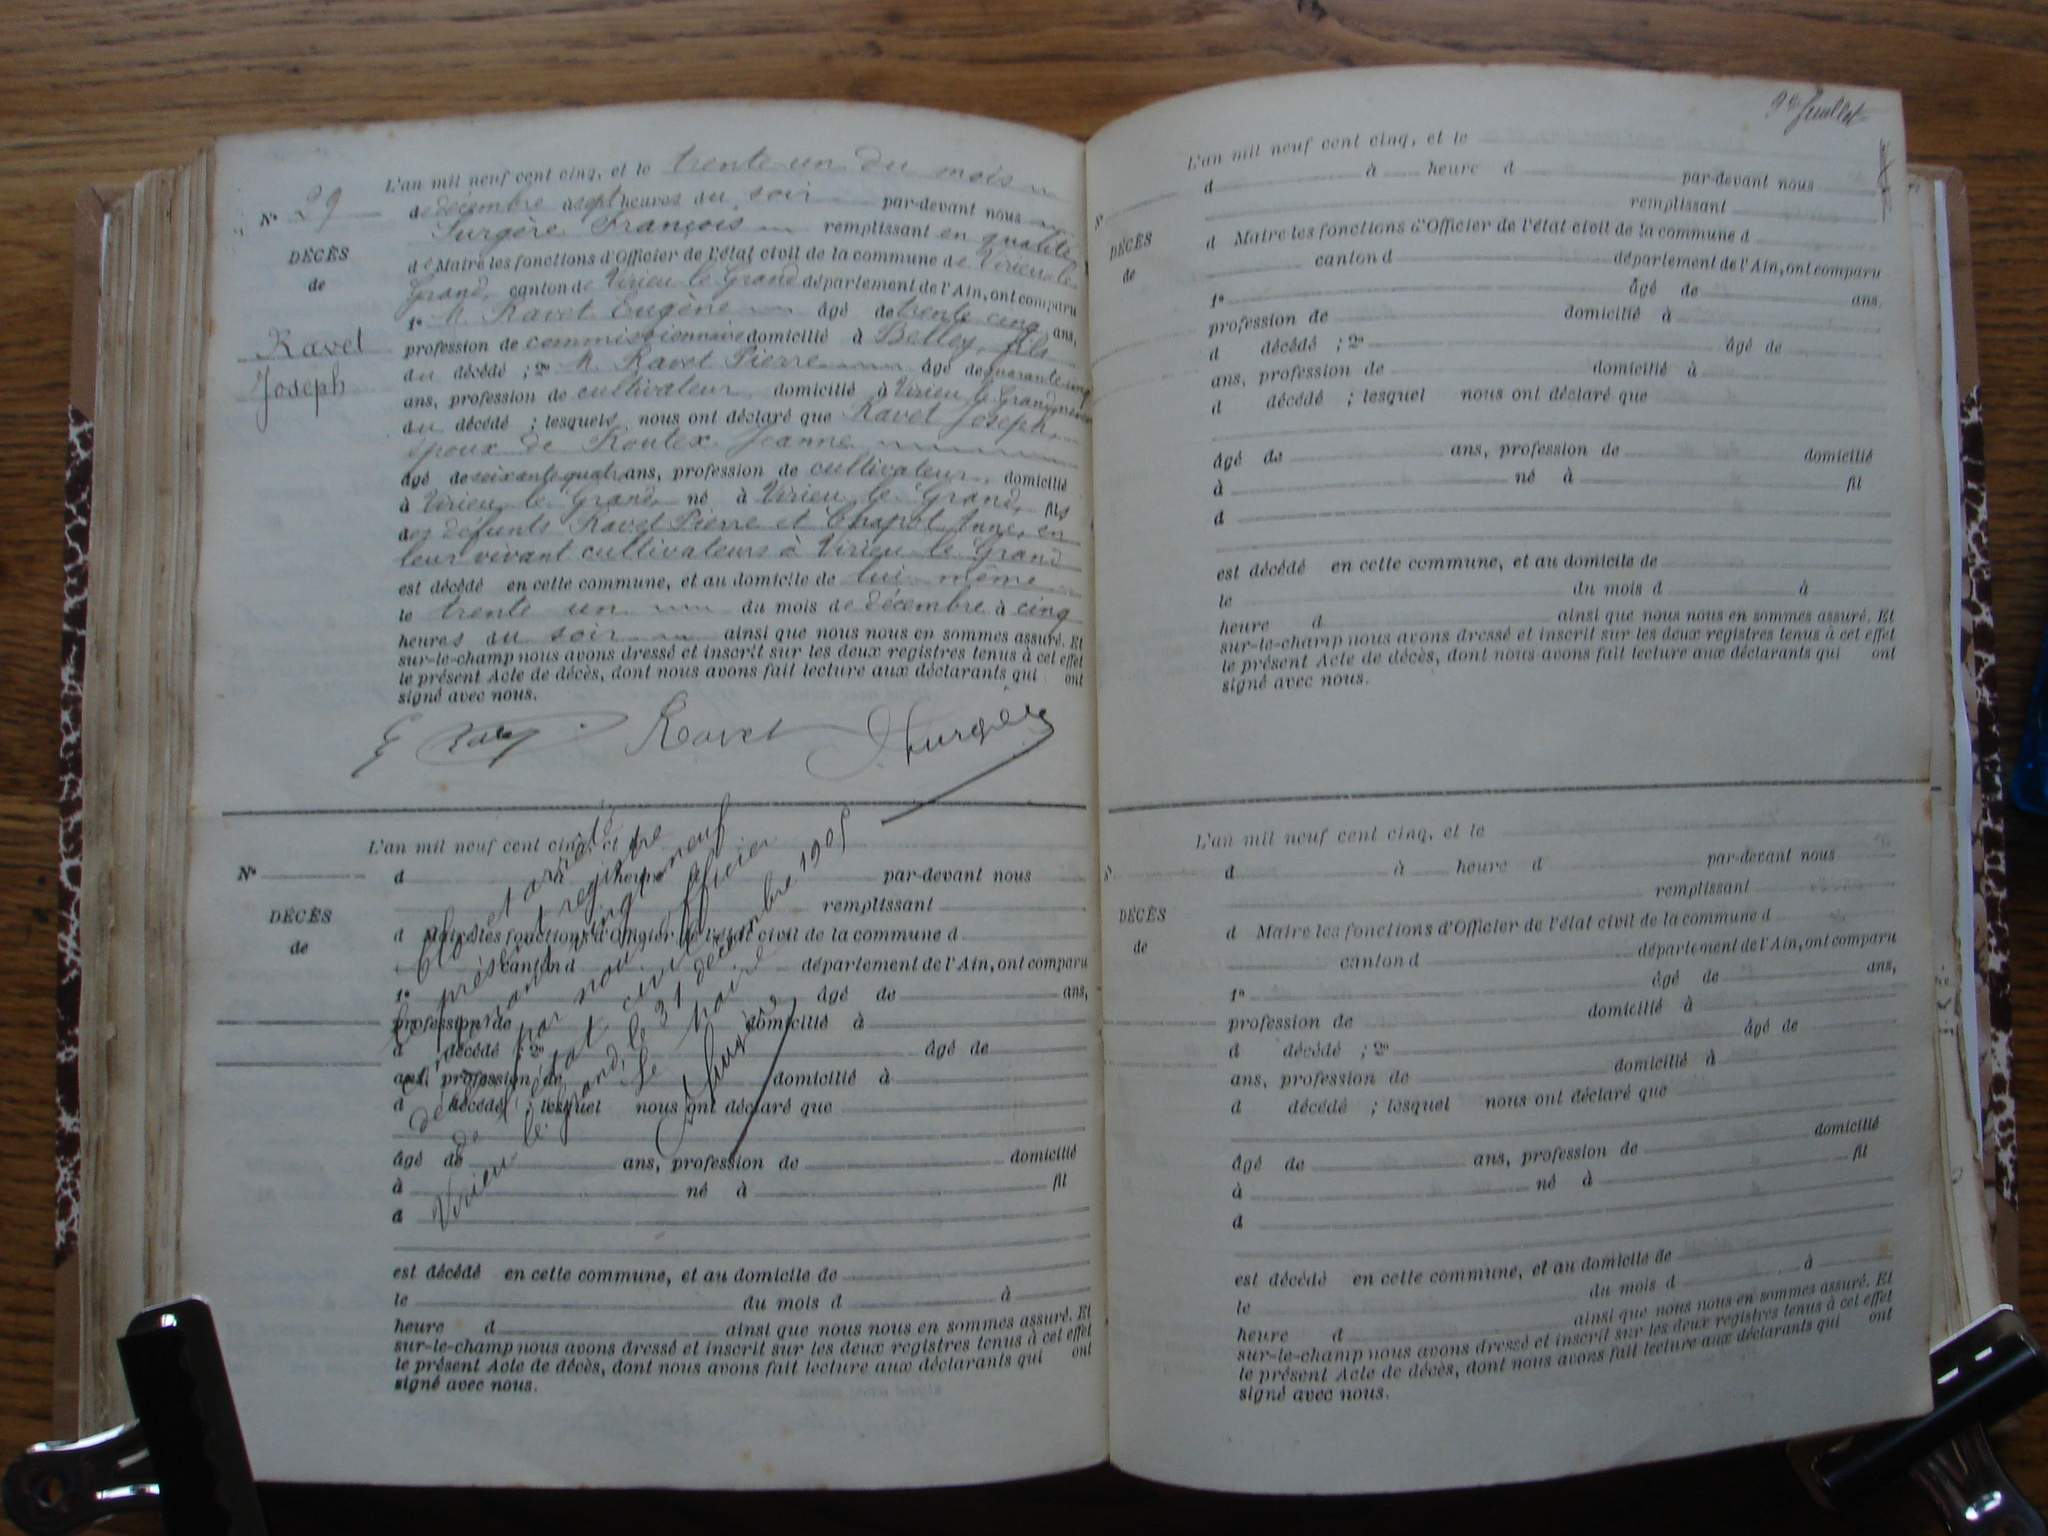 L'an mil neuf cent cinq, et le trente-un du mois
N° 29
de décembre à sept heures du soir par-devant nous
Surgère François remplissant en qualité
DÉCÈS
de
de Maire les fonctions d'Officier de l'état civil de la commune de Virieu-le-
Grand, canton de Virieu le Grand département de l'Ain, ont comparu
1° M. Ravet Eugène âgé de trente cinq ans,
Ravet
Joseph
profession de commissionnaire domicilié à Belley, fils
du décédé ; 2° M. Ravet Pierre âgé de quarante cinq
ans, profession de cultivateur domicilié à Virieu le Grand,
du décédé ; lesquels nous ont déclaré que Ravet Joseph,
époux de Routex Jeanne
âgé de soixante quatre ans, profession de cultivateur, domicilié
à Virieu le Grand, né à Virieu le Grand, fils
des défunts Ravet Pierre et Chapot Anne, en
leur vivant cultivateurs à Virieu le Grand
est décédé en cette commune, et au domicile de lui-même
le trente un du mois de décembre à cinq
heures du soir ainsi que nous nous en sommes assuré. Et
sur-le-champ nous avons dressé et inscrit sur les deux registres tenus à cet effet
le présent Acte de décès, dont nous avons fait lecture aux déclarants qui ont
signé avec nous.
E Ravet Ravet Surgère
L'an mil neuf cent cinq, et le
N° d à heure d par-devant nous
remplissant
DÉCÈS
de
d Maire les fonctions d'Officier de l'état civil de la commune d
canton d département de l'Ain, ont comparu
1° âgé de ans,
profession de domicilié à
d décédé ; 2° âgé de
ans, profession de domicilié à
d décédé ; lesquel nous ont déclaré que
âgé de ans, profession de domicilié
à né à fil
d
est décédé en cette commune, et au domicile de
le du mois d à
heure d ainsi que nous nous en sommes assuré. Et
sur-le-champ nous avons dressé et inscrit sur les deux registres tenus à cet effet
le présent Acte de décès, dont nous avons fait lecture aux déclarants qui ont
signé avec nous.
Clos et arrêté
le présent registre
par nous officier
de l'état civil
Virieu le Grand, le 31 décembre 1905
Le Maire
Surgère
9e feuillet
L'an mil neuf cent cinq, et le
d à heure d par-devant nous
N° remplissant
DÉCÈS
de
d Maire les fonctions d'Officier de l'état civil de la commune d
canton d département de l'Ain, ont comparu
1° âgé de ans.
profession de domicilié à
d décédé ; 2° âgé de
ans, profession de domicilié à
d décédé ; lesquel nous ont déclaré que
âgé de ans, profession de domicilié
à né à fil
d
est décédé en cette commune, et au domicile de
le du mois d à
heure d ainsi que nous nous en sommes assuré. Et
sur-le-champ nous avons dressé et inscrit sur les deux registres tenus à cet effet
le présent Acte de décès, dont nous avons fait lecture aux déclarants qui ont
signé avec nous.
L'an mil neuf cent cinq, et le
d à heure d par-devant nous
remplissant
DÉCÈS
de
d Maire les fonctions d'Officier de l'état civil de la commune d
canton d département de l'Ain, ont comparu
1° âgé de ans,
profession de domicilié à
d décédé ; 2° âgé de
ans, profession de domicilié à
d décédé ; lesquel nous ont déclaré que
âgé de ans, profession de domicilié
à né à fil
d
est décédé en cette commune, et au domicile de
le du mois d à
heure d ainsi que nous nous en sommes assuré. Et
sur-le-champ nous avons dressé et inscrit sur les deux registres tenus à cet effet
le présent Acte de décès, dont nous avons fait lecture aux déclarants qui ont
signé avec nous.